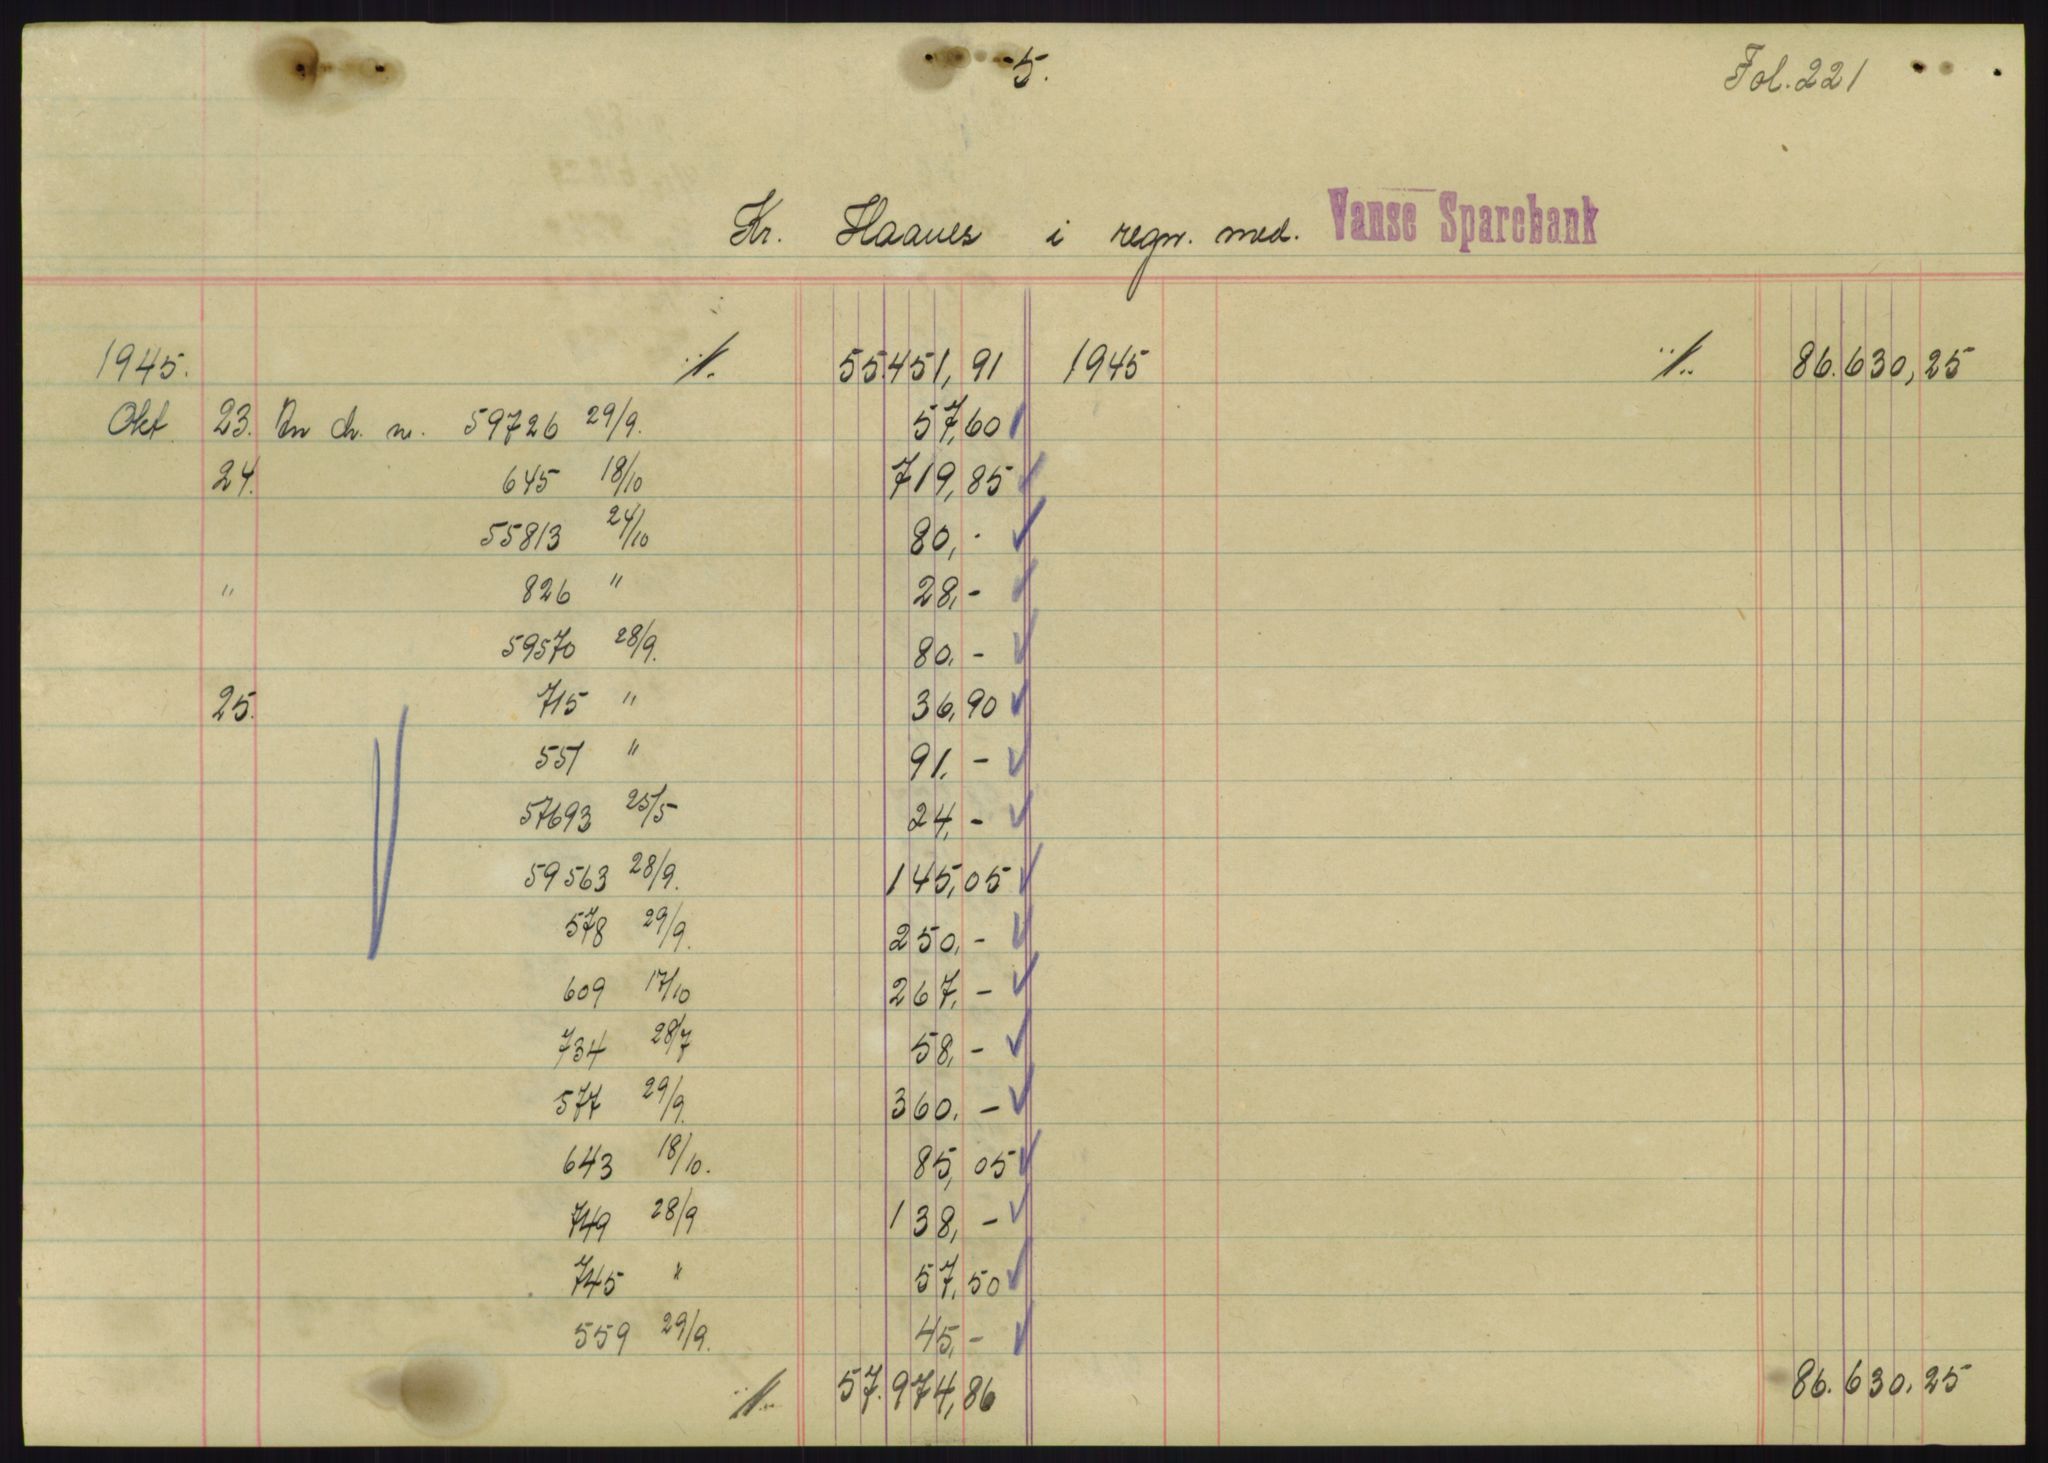 5. Fol. 221
Kr. Haanes i regn. med. Vanse Sparebank
1945. ·/. 55.451,91 1945 ·/. 86.630,25
Okt. 23. ch. nr. 59726 29/9. 57,60
24. 645 18/10 719,85
55813 24/10 80,-
" 826 " 28,-
59570 28/9. 80,-
25. 715 " 36,90
551 " 91,-
57693 25/5 24,-
59563 28/9. 145,05
578 29/9. 250,-
609 17/10 267,-
734 28/7 58,-
577 29/9. 360,-
643 18/10. 85,05
749 28/9 138,-
745 " 57,50
559 29/9. 45,-
·/. 57.974,86 86.630,25